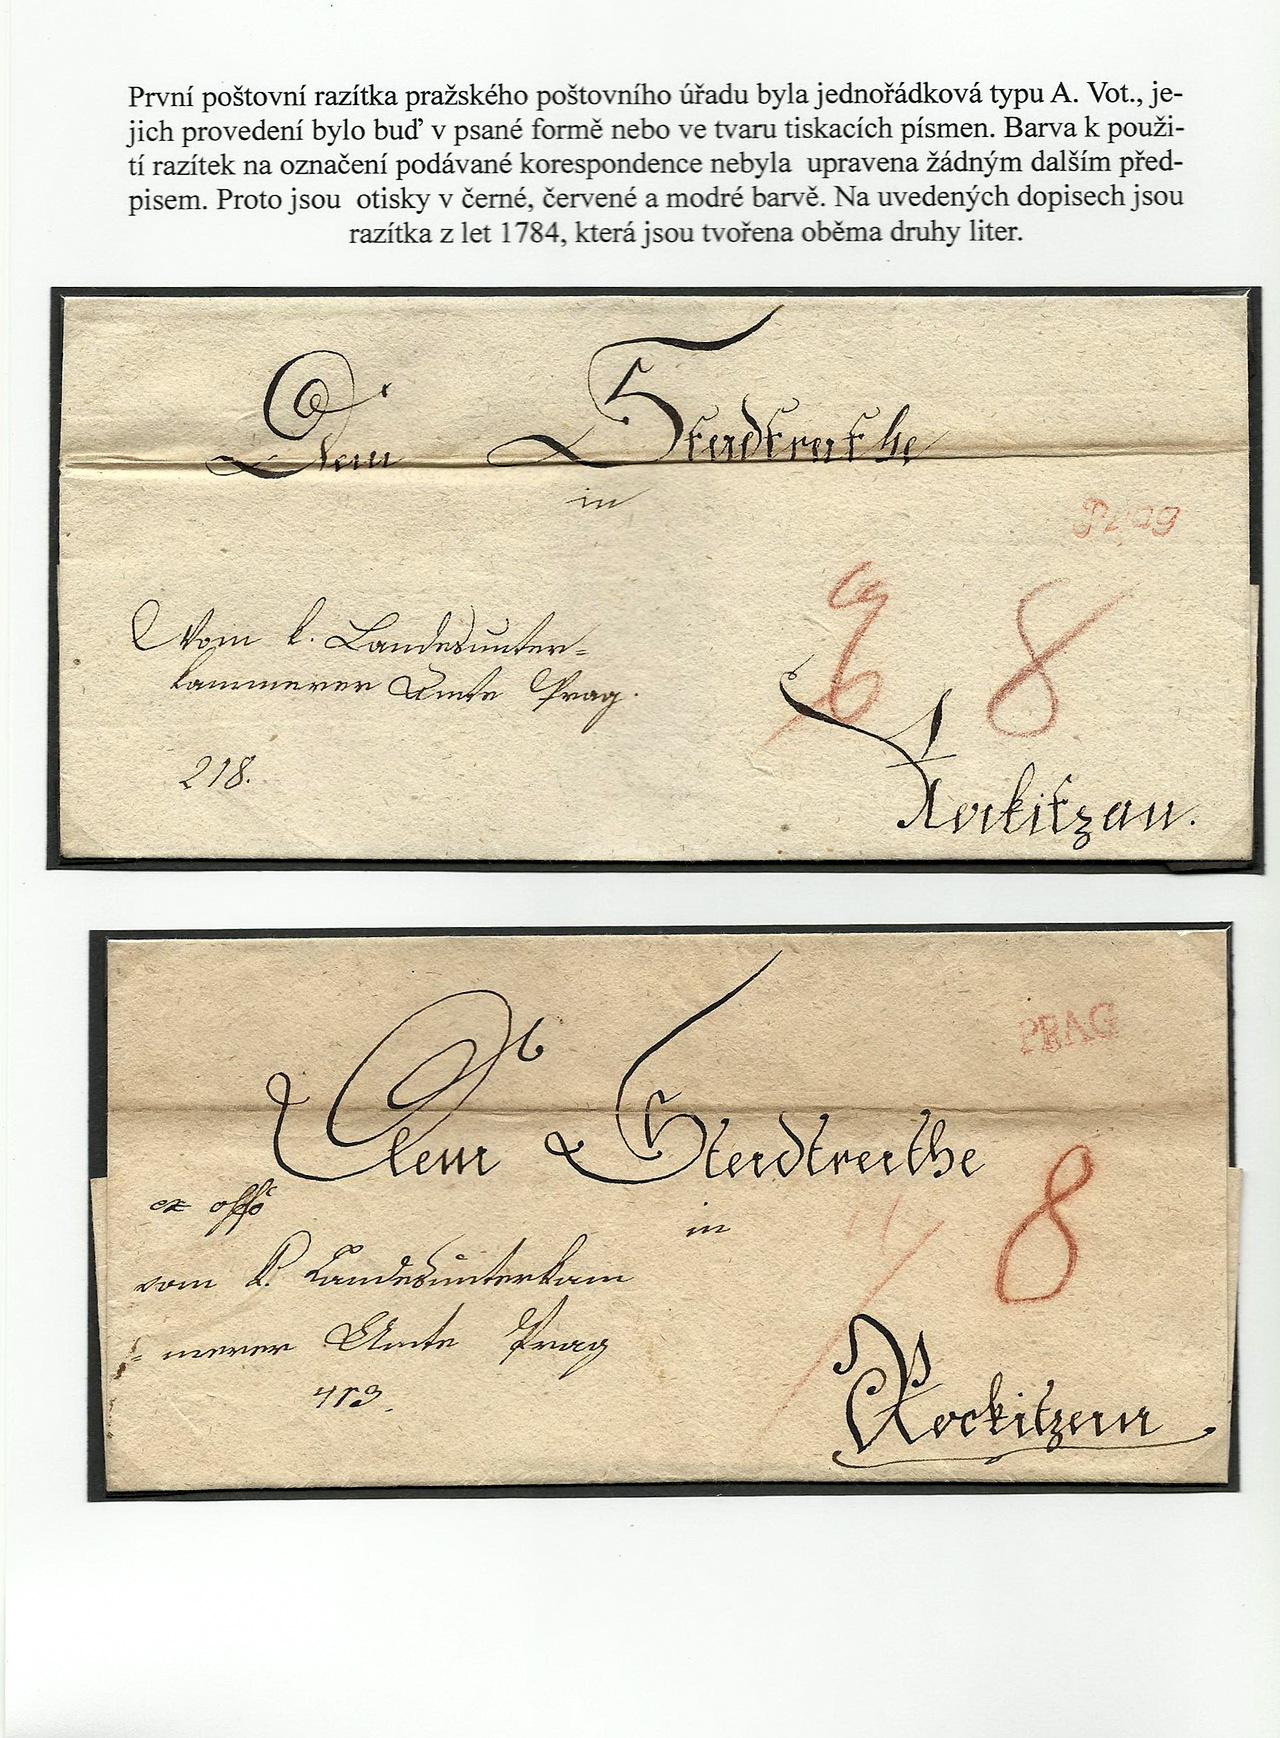 První poštovní razítka pražského poštovního úřadu byla jednořádková typu A. Vot., je-
jich provedení bylo buď v psané formě nebo ve tvaru tiskacích písmen. Barva k použi-
tí razítek na označení podávané korespondence nebyla  upravena žádným dalším před-
pisem. Proto jsou  otisky v černé, červené a modré barvě. Na uvedených dopisech jsou
razítka z let 1784, která jsou tvořena oběma druhy liter.
Dem Stadtrathe
in
Prag
8
Vom k. Landesunter=
kammerer Amte Prag.
218.
Rockitzan.
PRAG
Dem Stadtrathe
ex offo
in
8
vom k. Landesunterkam
= merer Amte Prag
413.
Rockitzan